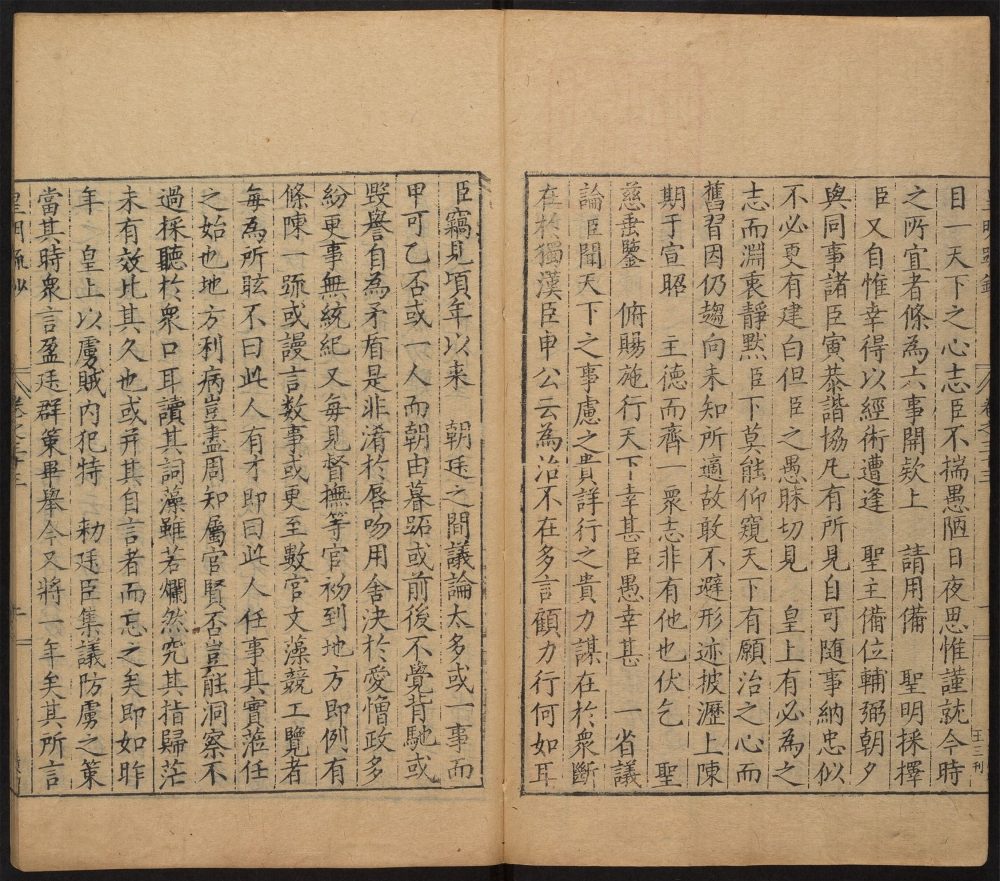 目一天下之心志臣不揣愚陋日夜思惟謹就今時
之所宜者條為六事開欵上　請用備　聖明採擇
臣又自惟幸得以經術遭逢　聖主備位輔弼朝夕
與同事諸臣寅恭諧協凡有所見自可隨事納忠似
不必更有建白但臣之愚昧切見　皇上有必為之
志而淵衷靜默臣下莫能仰窺天下有願治之心而
舊習因仍趨向未知所適故敢不避形迹披瀝上陳
期于宣昭　主德而齊一衆志非有他也伏乞　聖
慈垂鑒　俯賜施行天下幸甚臣愚幸甚　一省議
論臣聞天下之事慮之貴詳行之貴力謀在於衆斷
在於獨漢臣申公云為治不在多言顧力行何如耳
王三刊
臣竊見頃年以來　朝廷之間議論太多或一事而
甲可乙否或一人而朝由暮跖或前後不覺背馳或
毀譽自為矛盾是非淆於唇吻用舍決於愛憎政多
紛更事無統紀又每見督撫等官初到地方即例有
條陳一疏或謾言数事或更至數官文藻競工覽者
每為所眩不曰此人有才即曰此人任事其實蒞任
之始也地方利病豈盡周知屬官賢否豈能洞察不
過採聽於衆口耳讀其詞藻雖若爛然究其指歸茫
未有效比其久也或并其自言者而忘之矣即如昨
年　皇上以虜賊内犯特　勅廷臣集議防虜之策
當其時衆言盈廷群策畢舉今又將一年矣其所言
皇明疏鈔　卷之二十三